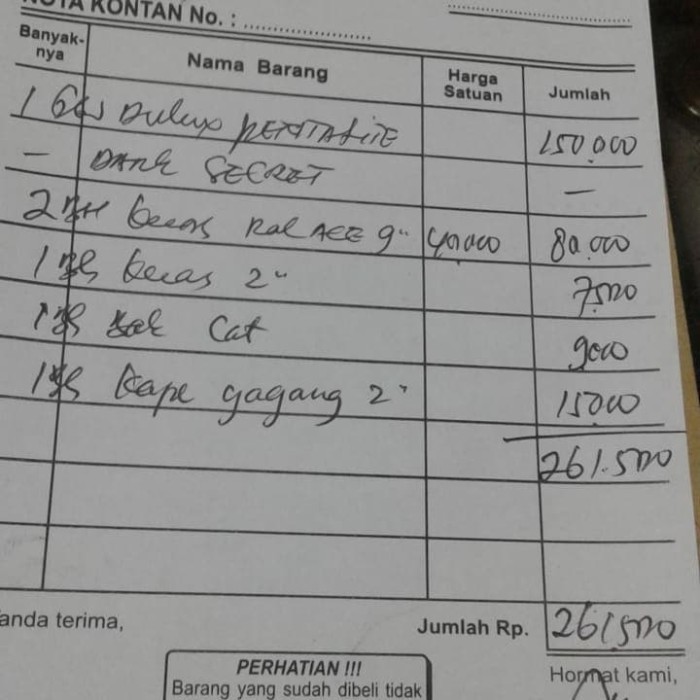 NOTA KONTAN No. :
Banyak-nya Nama Barang Harga Satuan Jumlah
1 Dulux PENTALITE 150.000
- DARK SECRET -
2 kuas Rol ACE 9" 40.000 80.000
1 kuas 2" 7500
1 bak Cat 9000
1 kape gagang 2" 15000
261.500
anda terima, Jumlah Rp. 261.500
PERHATIAN !!! Hormat kami,
Barang yang sudah dibeli tidak